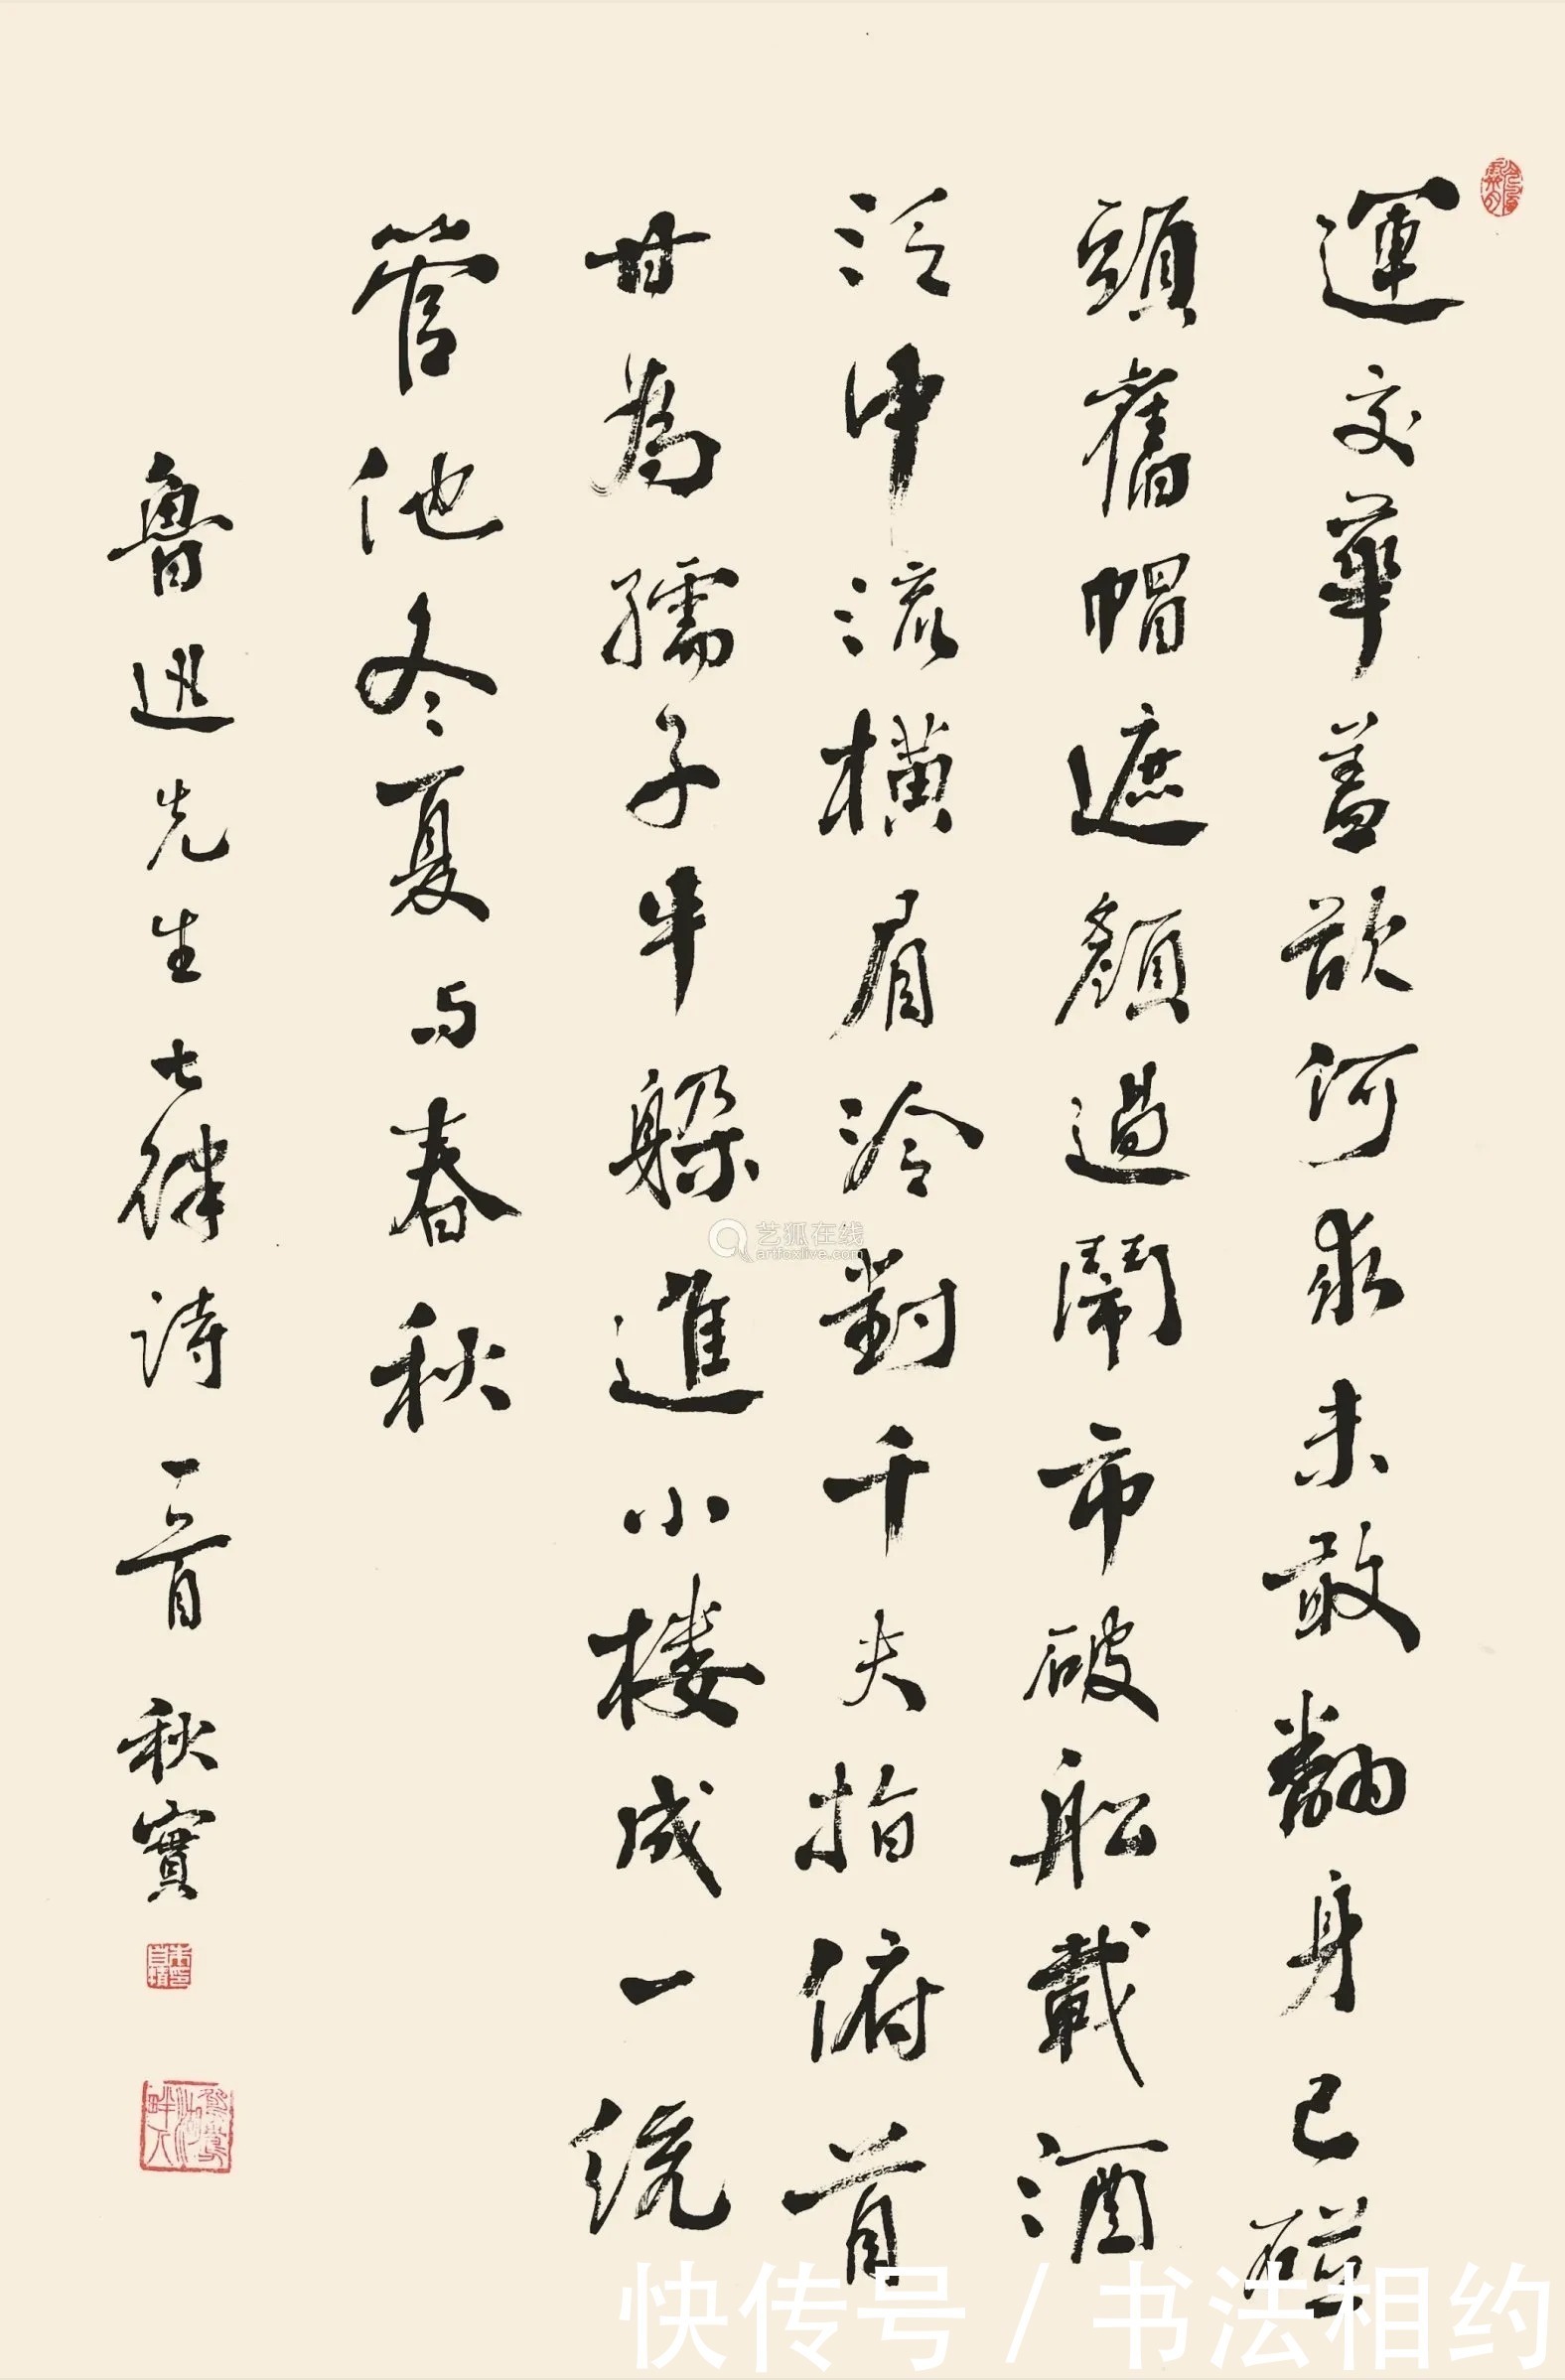 運交華盖欲何求未敢翻身已碰
頭舊帽遮顏過鬧市破船載酒
泛中流橫眉冷對千夫指俯首
甘為孺子牛躲進小楼成一統
管他冬夏与春秋
魯迅先生七律诗一首 秋實
艺狐在线
artfoxlive.com
快传号 / 书法相约